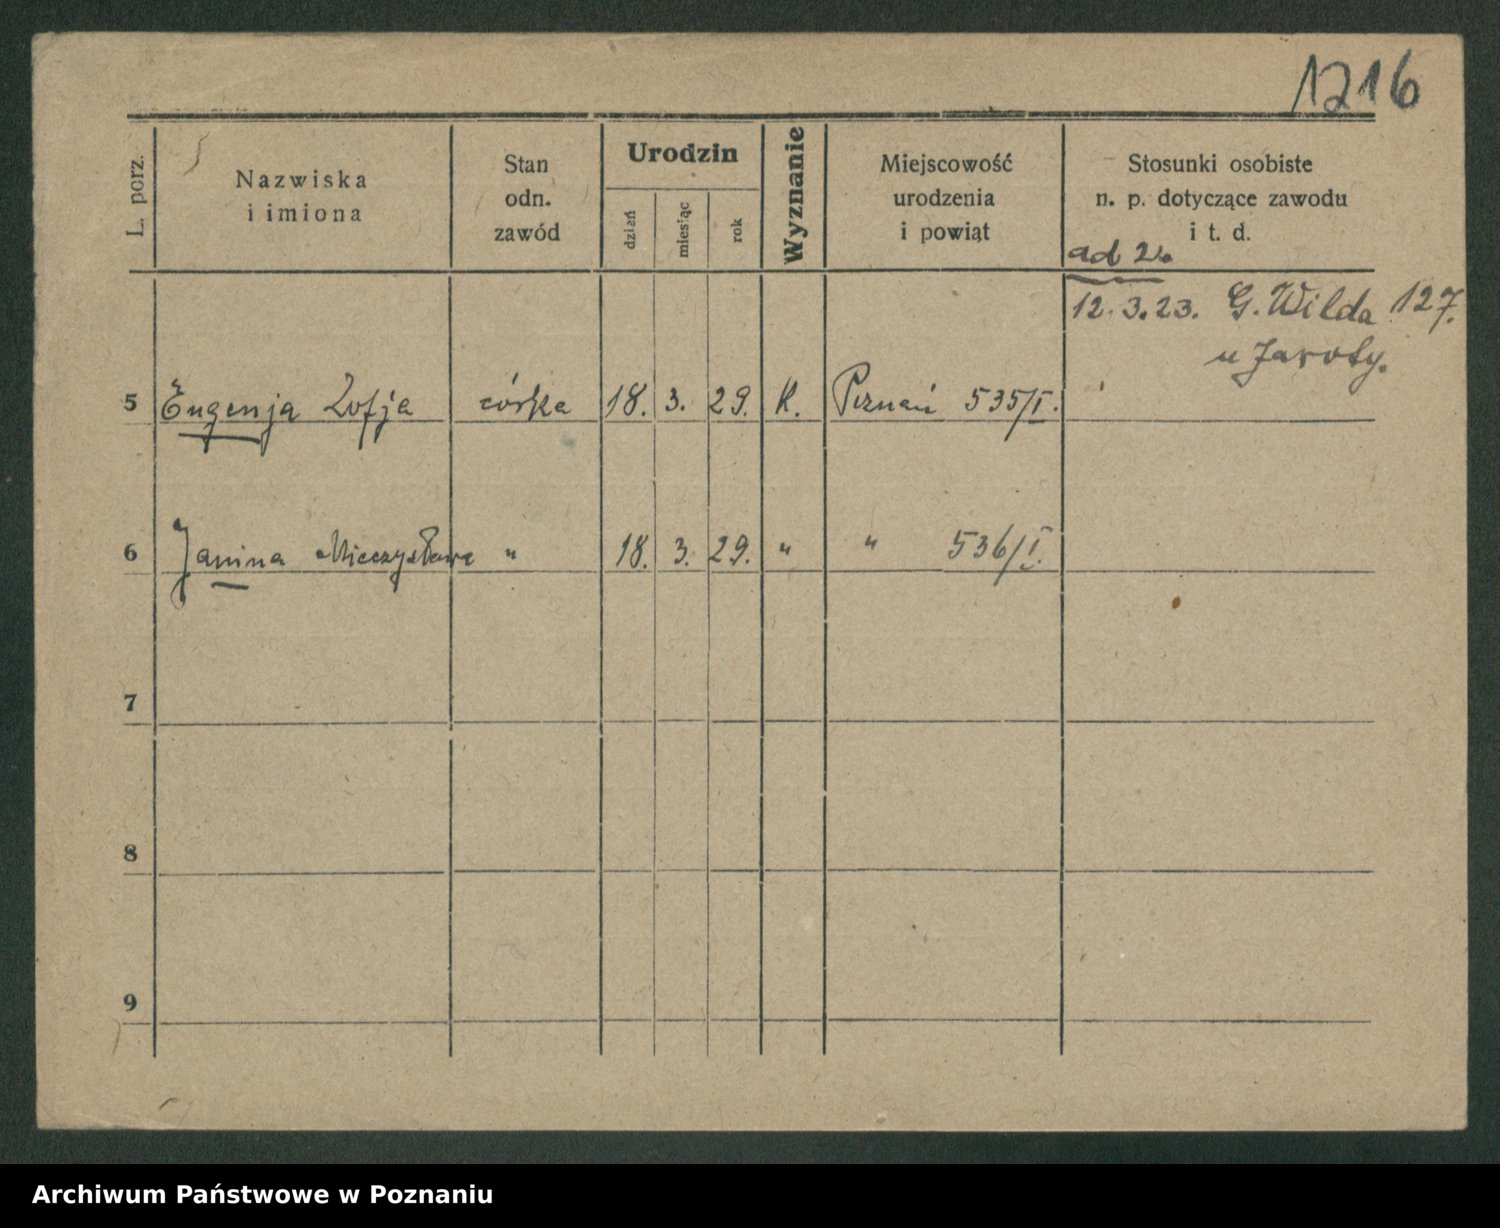 1216
L. porz.
Nazwiska
i imiona
Stan
odn.
zawód
Urodzin
dzień
miesiąc
rok
Wyznanie
Miejscowość
urodzenia
i powiąt
Stosunki osobiste
n. p. dotyczące zawodu
i t. d.
ad 2.
12.3.23. G. Wilda 127.
u Jaroty.
5 Eugenja Zofja córka 18. 3. 29. K. Poznań 535/I.
6 Janina Mieczysława " 18. 3. 29. " " 536/I.
7
8
9
Archiwum Państwowe w Poznaniu